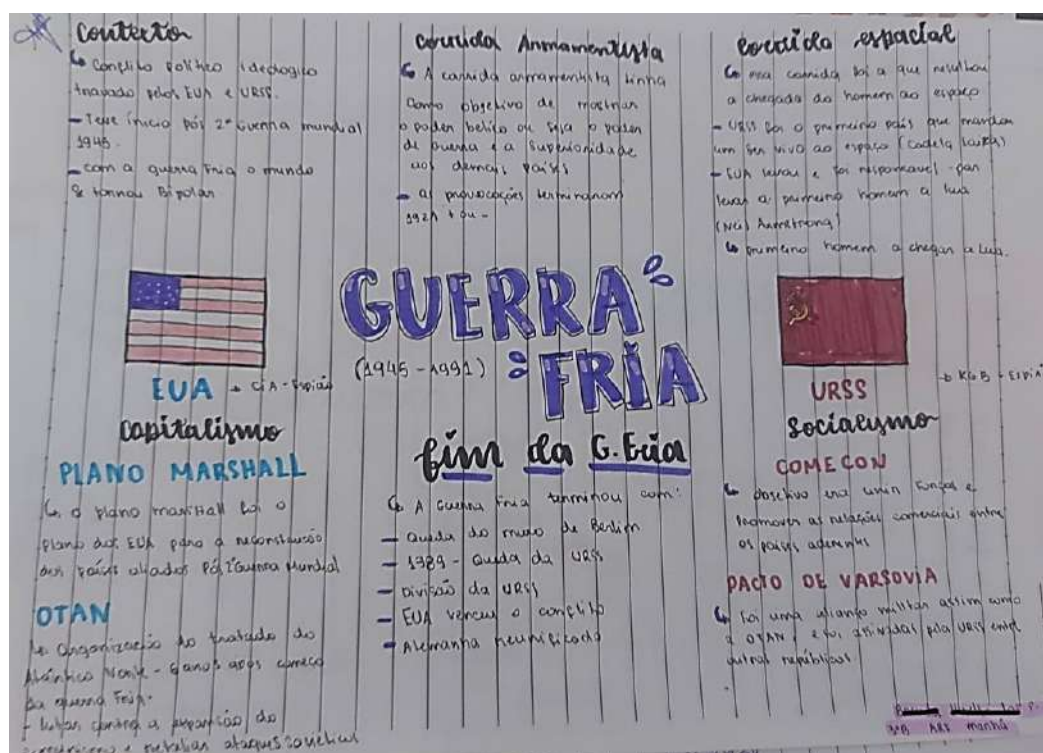 Contexto
Conflito político ideologico
travado pelos EUA e URSS.
- Teve início pós 2ª Guerra mundial
1945.
- com a guerra Fria o mundo
se tornou Bipolar
Corrida Armamentista
A corrida armamentista tinha
como objetivo de mostrar
o poder belico ou seja o poder
de guerra e a superioridade
aos demais países
- as provocações terminaram
+ ou -
corrida espacial
essa corrida foi a que resultou
a chegada do homem ao espaço
- URSS foi o primeiro país que mandou
um ser vivo ao espaço (cadela Laika)
- EUA levou e foi responsavel por
levar o primeiro homem a lua
(Neil Armstrong)
primeiro homem a chegar a lua.
GUERRA
FRIA
(1945-1991)
EUA → CIA - Espião
capitalismo
PLANO MARSHALL
o plano marshall foi o
plano dos EUA para a reconstrução
dos países aliados Pós 2ª Guerra Mundial
OTAN
Organização do tratado do
Atântico Norte - anos após começo
da guerra Fria.
- lutar contra a expansão do
e retaliar ataques soviéticos
fim da G. Fria
A Guerra Fria terminou com:
- Queda do muro de Berlim
- 1989 - Queda da URSS
- Divisão da URSS
- EUA venceu o conflito
- Alemanha reunificada
URSS → KGB - Espiã
socialismo
COMECON
objetivo era unir forças e
promover as relações comerciais entre
os países aderentes
PACTO DE VARSOVIA
foi uma aliança militar assim como
a OTAN e foi assinadas pela URSS entre
outras repúblicas.
3ºB ARS manhã